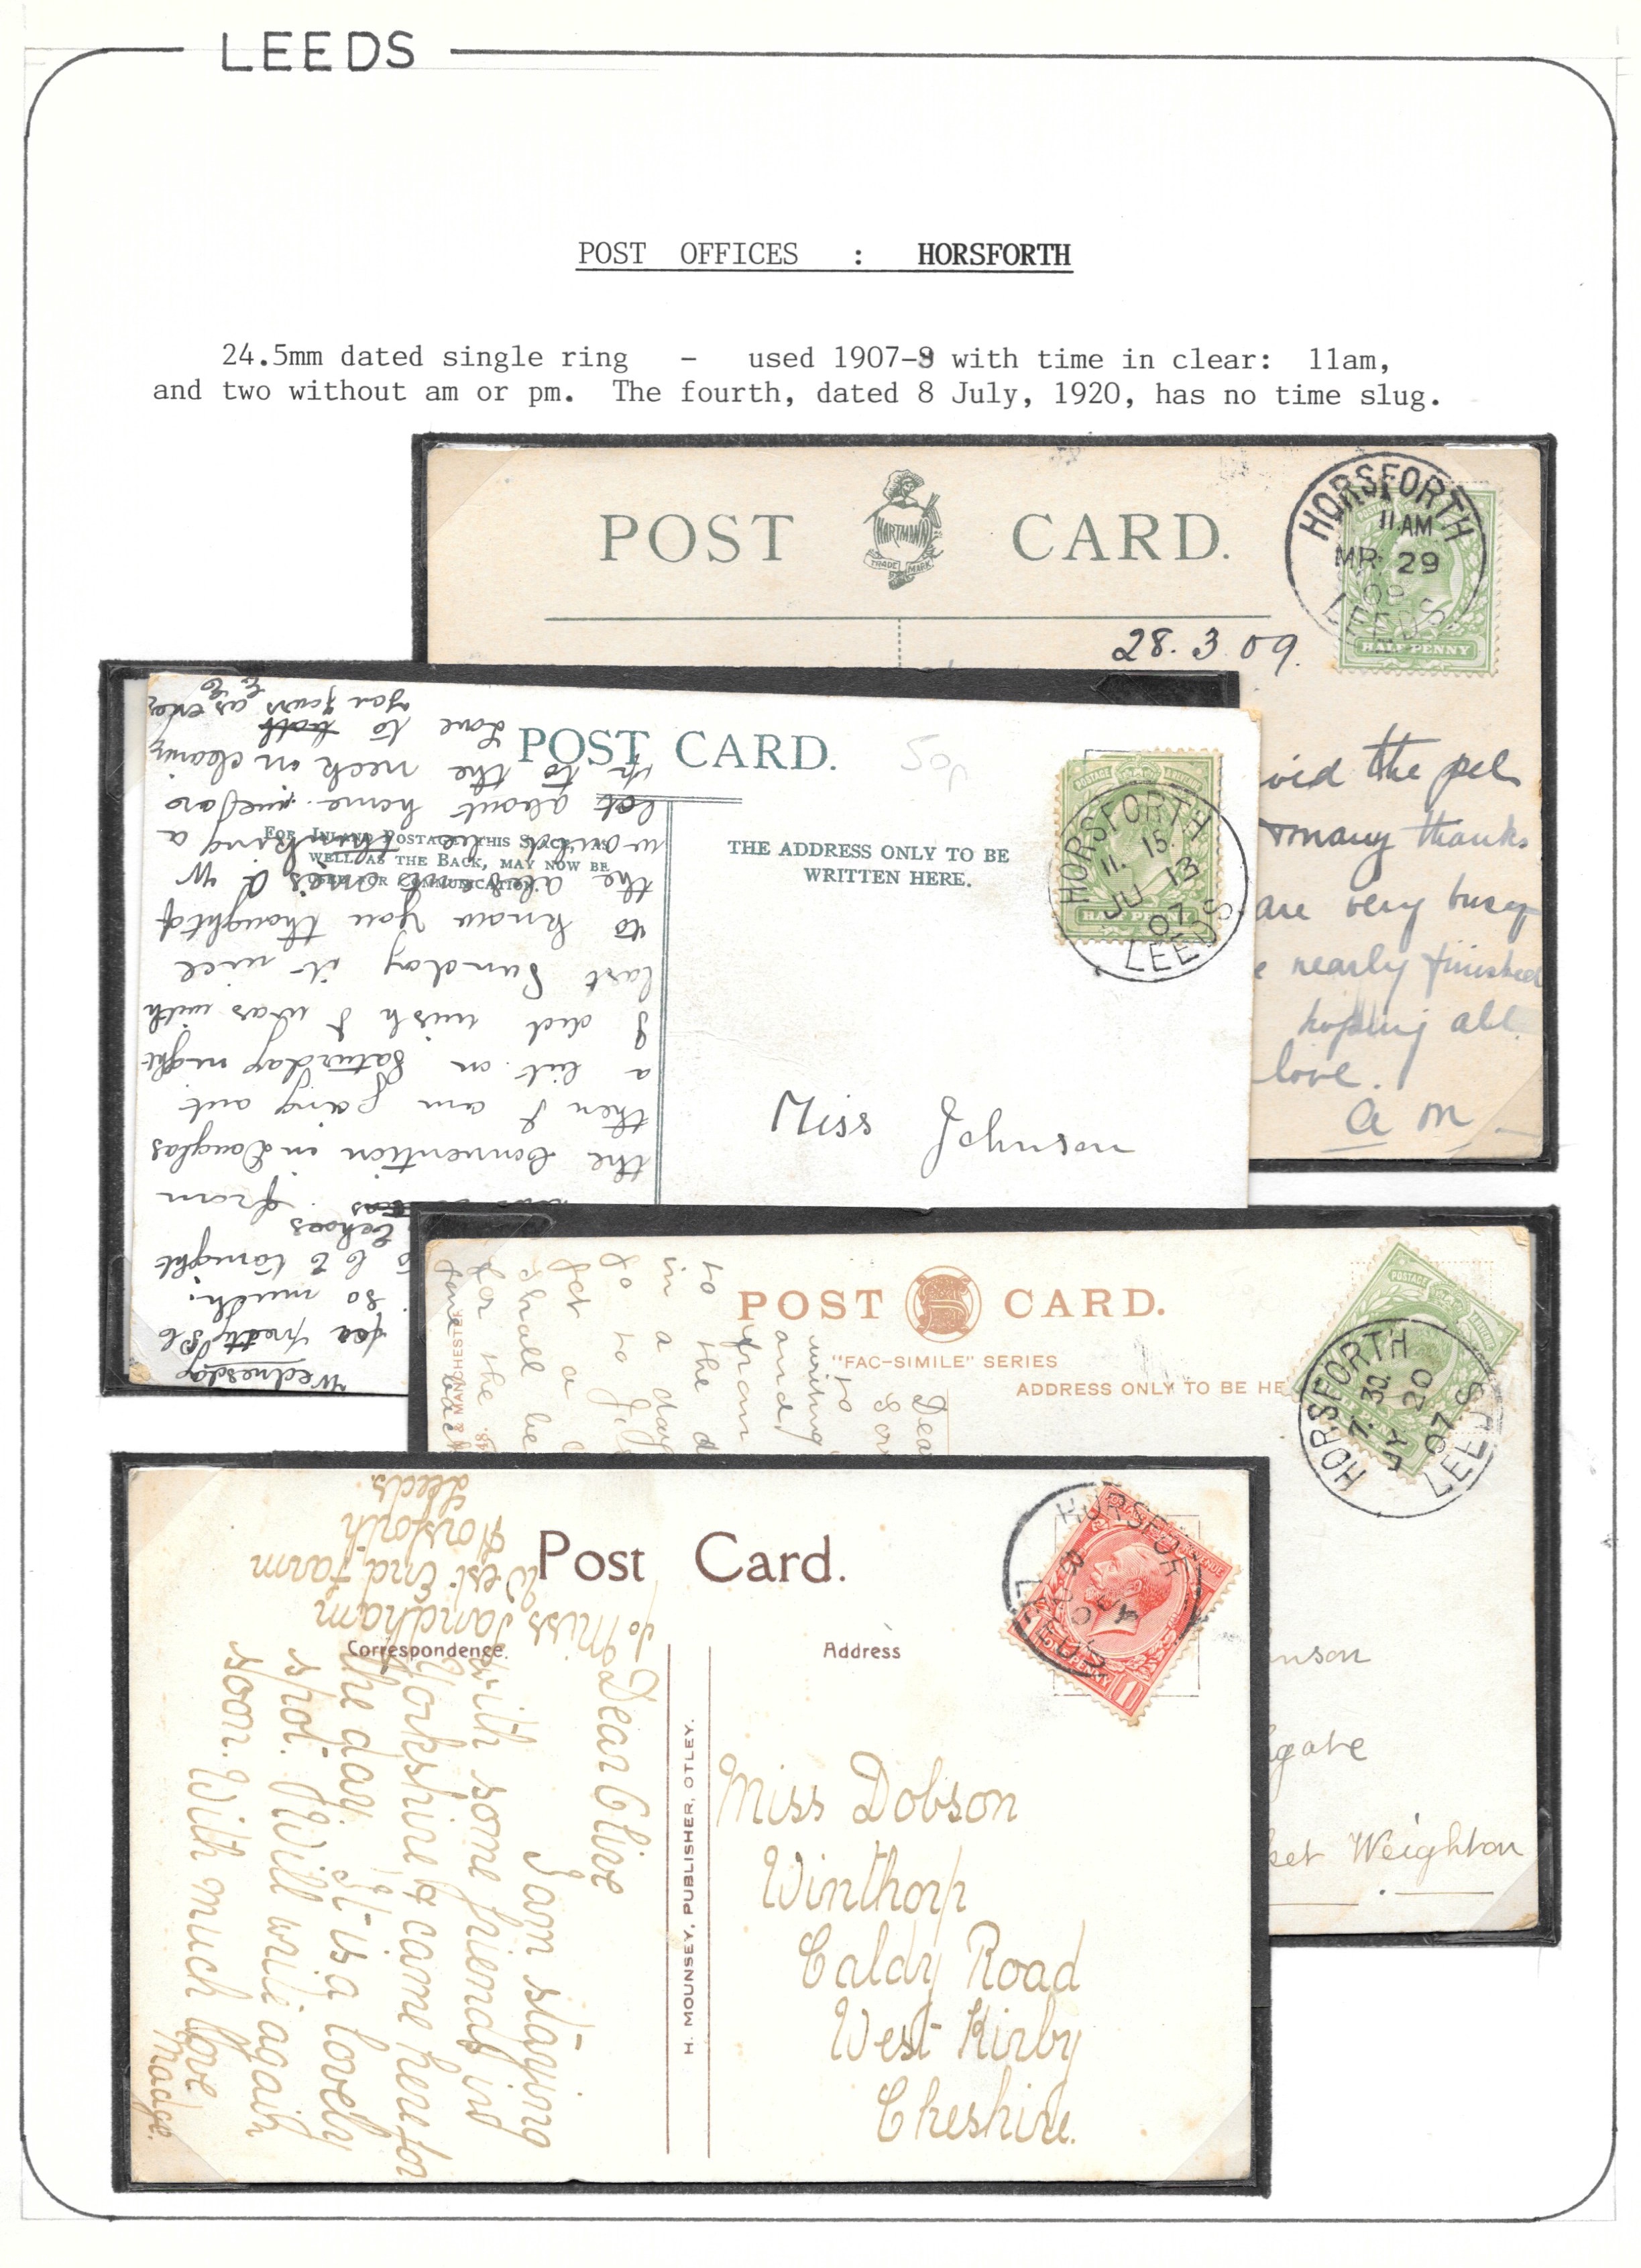 LEEDS
POST OFFICES : HORSFORTH
24.5mm dated single ring - used 1907-9 with time in clear: 11am,
and two without am or pm. The fourth, dated 8 July, 1920, has no time slug.
POST CARD.
HARTMANN
TRADE MARK
HORSFORTH
11.AM
MR 29
LEEDS
HALF PENNY
28.3.09.
the pel
many thanks
are very busy
nearly finished
hoping all
love.
a m
POST CARD.
50p
FOR INLAND POSTAGE THIS SPACE, AS
WELL AS THE BACK, MAY NOW BE
USED FOR COMMUNICATION.
THE ADDRESS ONLY TO BE
WRITTEN HERE.
POSTAGE
HORSFORTH
11. 15.
JU 13
07
LEEDS
HALF PENNY
Miss Johnson
Wednesday
so much.
to tonight
echoes
from
the Convention in Douglas
then I am going out
a bit on Saturday night
I did wish I was with
last Sunday it nice
to know you thought of
the
a
lot about home
to the neck in cleaning
Love to
you yours as ever
POST CARD.
"FAC-SIMILE" SERIES
ADDRESS ONLY TO BE HE
& MANCHESTER
POSTAGE
HORSFORTH
7. 30.
JY 20
07
LEEDS
Dea
to
writing
and
from
to the d
in a day
go to
get a
shall be
for the
nson
gate
ket Weighton
Post Card.
Correspondence.
Address
HORSFOR
8 JY
20
LEEDS
PENNY
1
To Miss Sandham
West End Farm
Horsforth
Leeds.
Dear Olive
I am staying
with some friends in
Yorkshire & came here for
the day. It is a lovely
spot. Will write again
soon. With much love
Madge.
H. MOUNSEY, PUBLISHER, OTLEY.
Miss Dobson
Winthorp
Caldy Road
West Kirby
Cheshire.